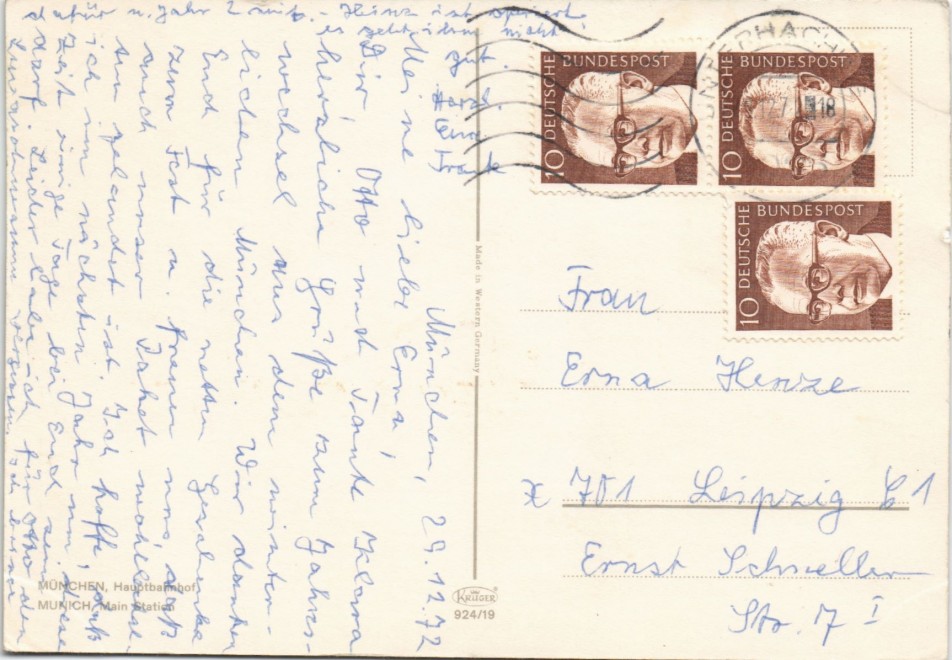 München, 29.12.72
Meine liebe Erna!
Dir, Otto und Tante Klara
herzliche Grüße zum Jahres-
wechsel aus dem winter-
lichen München. Wir danken
Euch für die netten Geschenke
zum Fest u. freuen uns, daß
auch unser Paket wohlbehalten
gelandet ist. Ich hoffe, daß
ich im nächsten Jahr um diese
Zeit einige Tage bei Euch sein
darf. Leider habe ich für Otto den
vergessen, wir
dafür n. Jahr 2 mit. - Heinz ist operiert
es geht ihm nicht
gut.
DEUTSCHE BUNDESPOST
10
DEUTSCHE BUNDESPOST
10
DEUTSCHE BUNDESPOST
10
18
Made in Western Germany
Frau
Erna Henze
x 701 Leipzig C 1
Ernst Schneller
Str. 7 I
MÜNCHEN, Hauptbahnhof
MUNICH, Main Station
KRÜGER
924/19